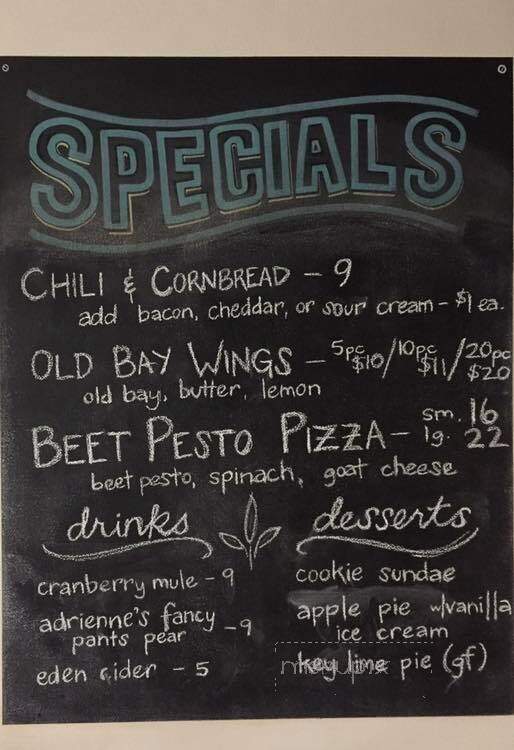 SPECIALS
CHILI & CORNBREAD - 9
add bacon, cheddar, or sour cream - $1 ea.
OLD BAY WINGS - 5pc $10/10pc $11/20pc $20
old bay, butter, lemon
BEET PESTO PIZZA - sm. 16
lg. 22
beet pesto, spinach, goat cheese
drinks
cranberry mule - 9
adrienne's fancy
pants pear - 9
eden cider - 5
desserts
cookie sundae
apple pie w/vanilla
ice cream
key lime pie (gf)